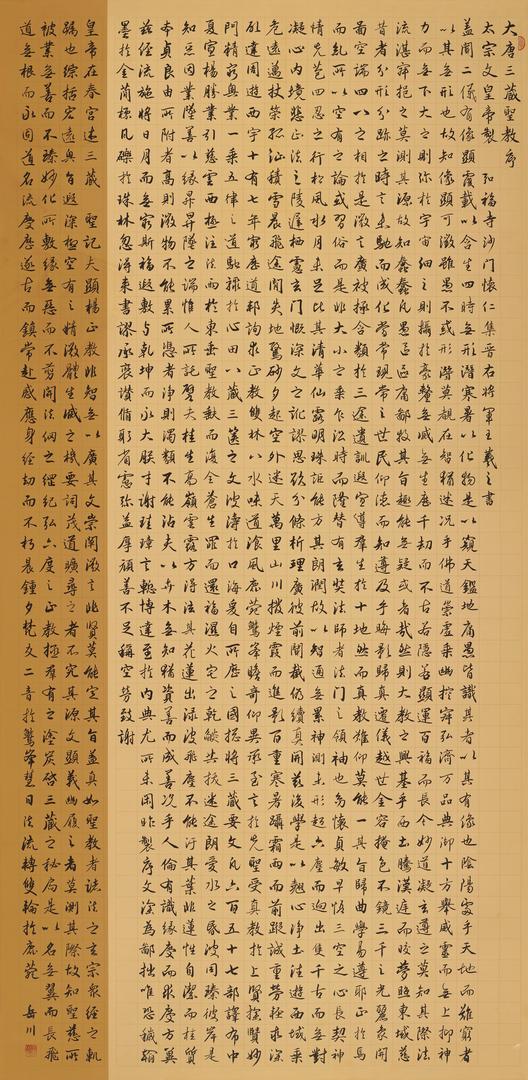 大唐三藏聖教序
太宗文皇帝製 弘福寺沙門懷仁集晉右將軍王羲之書
蓋聞二儀有像顯覆載以含生四時無形潛寒暑以化物是以窺天鑑地庸愚皆識其者以其有像也陰陽處乎天地而難窮者
以其無形也故知像顯可徵雖愚不惑形潛莫覩在智猶迷況乎佛道崇虛乘幽控寂弘濟萬品典御十方舉威靈而無上抑神
力而無下大之則彌於宇宙細之則攝於豪釐無滅無生歷千劫而不古若隱若顯運百福而長今妙道凝玄遵之莫知其際法
流湛寂挹之莫測其源故知蠢蠢凡愚區區庸鄙投其旨趣能無疑或者哉然則大教之興基乎西土騰漢庭而皎夢照東域慈
昔者分形分跡之時言未馳而成化當常現常之世民仰德而知遵及乎晦影歸真遷儀越世金容掩色不鏡三千之光麗象開
圖空端四八之相於是微言廣被拯含類於三途遺訓遐宣導群生於十地然真教難仰莫能一其旨歸曲學易遵耶正於焉
而糺所以空有之論或習俗而是非大小之乘乍沿時而隆替有玄奘法師者法門之領袖也幼懷貞敏早悟三空之心長契神
情先苞四忍之行松風水月未足比其清華仙露明珠詎能方其朗潤故以智通無累神測未形超六塵而迥出隻千古而無對
凝心內境悲正法之陵遲栖慮玄門慨深文之訛謬思欲分條析理廣彼前聞截偽續真開茲後學是以翹心淨土法遊西域乘
危遠邁杖策孤征積雪晨飛途間失地驚砂夕起空外迷天萬里山川撥煙霞而進影百重寒暑躡霜雨而前蹤誠重勞輕求深
願達周遊西宇十有七年窮歷道邦詢求正教雙林八水味道湌風鹿菀鷲峯瞻奇仰異承至言於先聖受真教於上賢探賾妙
門精窮奧業一乘五律之道馳驟於心田八藏三篋之文波濤於口海爰自所歷之國揔將三藏要文凡六百五十七部譯布中
夏宣揚勝業引慈雲於西極注法雨於東垂聖教缺而復全蒼生罪而還福濕火宅之乾燄共拔迷途朗愛水之昏波同臻彼岸是
知惡因業墜善以緣昇昇墜之端惟人所託譬夫桂生高嶺雲露方得泫其花蓮出淥波飛塵不能汙其葉非蓮性自潔而桂質
本貞良由所附者高則微物不能累所憑者淨則濁類不能沾夫以卉木無知猶資善而成善況乎人倫有識不緣慶而求慶方冀
茲經流施將日月而無窮斯福遐敷與乾坤而永大朕才謝珪璋言慙博達至於內典尤所未閑昨製序文深為鄙拙唯恐穢翰
墨於金簡標瓦礫於珠林忽得來書謬承褒讚循躬省慮彌益厚顏善不足稱空勞致謝
皇帝在春宮述三藏 聖記夫顯揚正教非智無以廣其文崇闡微言非賢莫能定其旨蓋真如聖教者諸法之玄宗眾經之軌
躅也綜括宏遠奧旨遐深極空有之精微體生滅之機要詞茂道曠尋之者不究其源文顯義幽履之者莫測其際故知聖慈所
被業無善而不臻妙化所敷緣無惡而不剪開法網之綱紀弘六度之正教拯群有之塗炭啓三藏之秘扃是以名無翼而長飛
道無根而永固道名流慶歷遂古而鎮常赴感應身經劫而不朽晨鐘夕梵交二音於鷲峯慧日法流轉雙輪於鹿菀 岳川